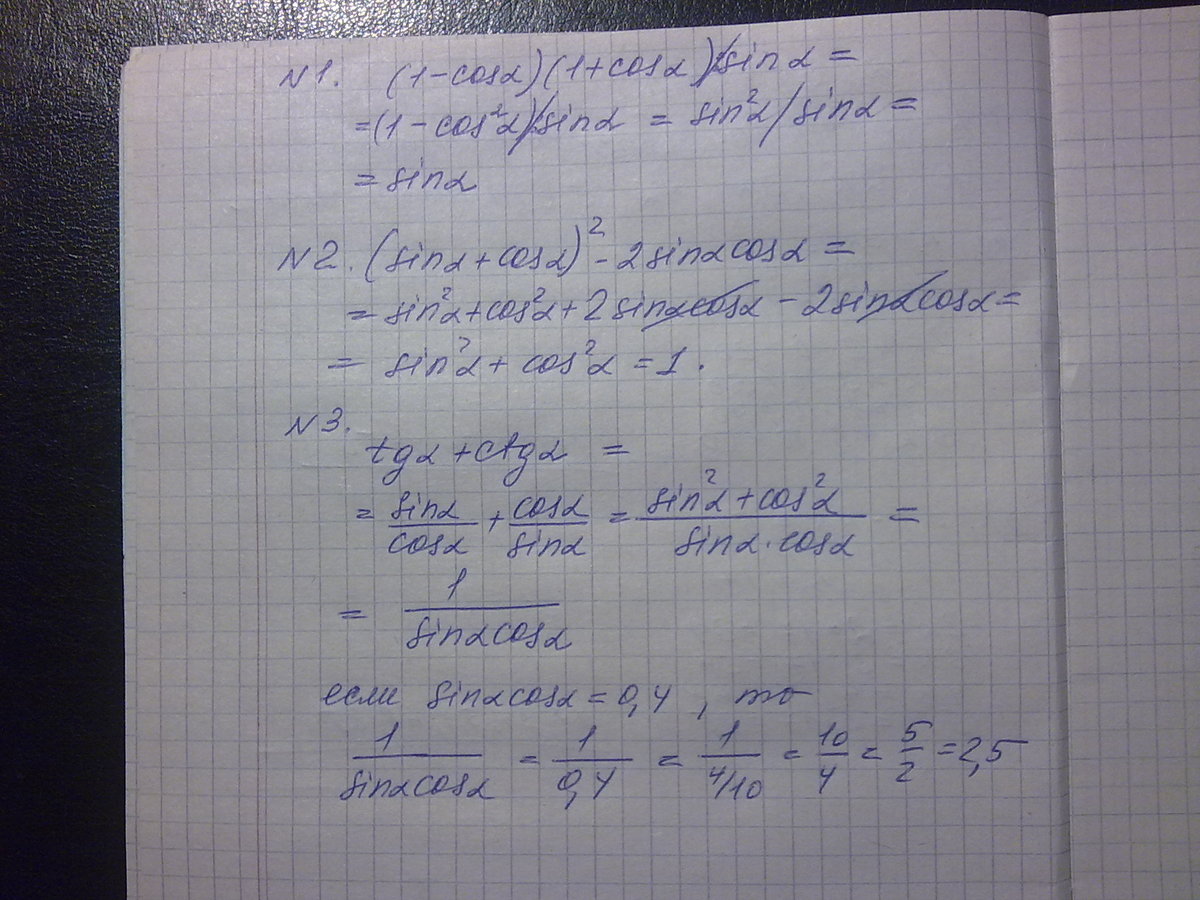 N1. (1-cosα)(1+cosα)/sinα =
=(1-cos²α)/sinα = sin²α/sinα =
= sinα
N2. (sinα+cosα)² - 2sinαcosα =
= sin²α+cos²α+2sinαcosα - 2sinαcosα=
= sin²α + cos²α = 1.
N3.
tgα+ctgα =
= sinα/cosα + cosα/sinα = sin²α+cos²α/sinα·cosα =
= 1/sinαcosα
если sinαcosα = 0,4, то
1/sinαcosα = 1/0,4 = 1/4/10 = 10/4 = 5/2 = 2,5